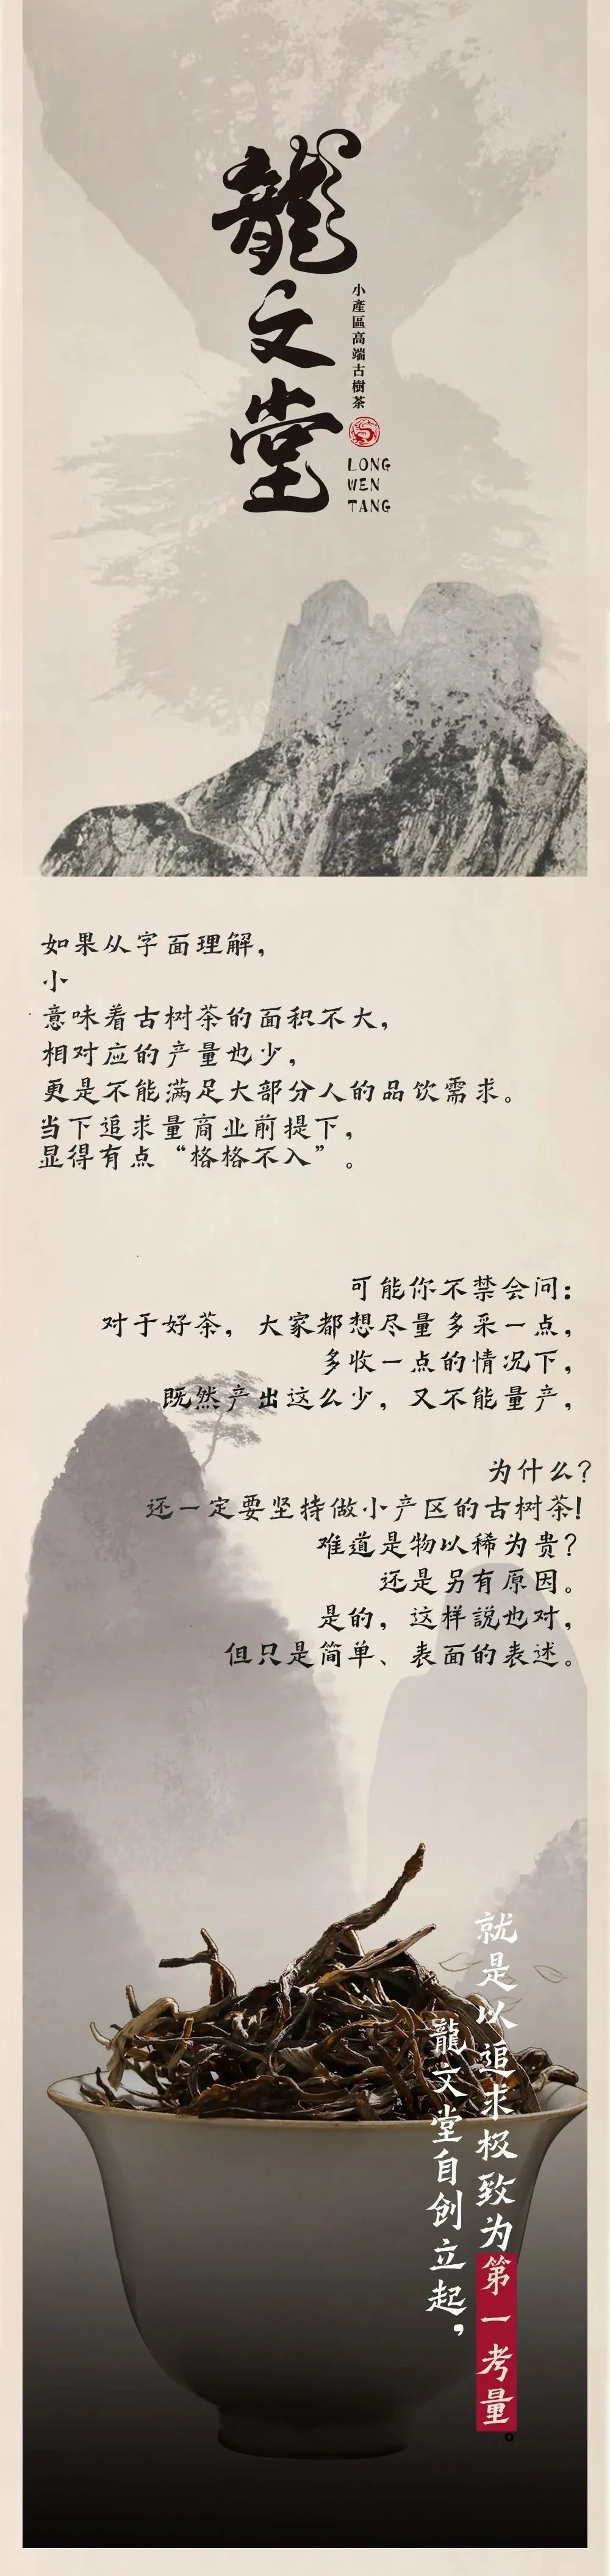 龍文堂
小產區高端古樹茶
LONG
WEN
TANG
如果从字面理解，
小
意味着古树茶的面积不大，
相对应的产量也少，
更是不能满足大部分人的品饮需求。
当下追求量商业前提下，
显得有点“格格不入”。
可能你不禁会问：
对于好茶，大家都想尽量多采一点，
多收一点的情况下，
既然产出这么少，又不能量产，
为什么？
还一定要坚持做小产区的古树茶！
难道是物以稀为贵？
还是另有原因。
是的，这样説也对，
但只是简单、表面的表述。
龍文堂自创立起，
就是以追求极致为第一考量。